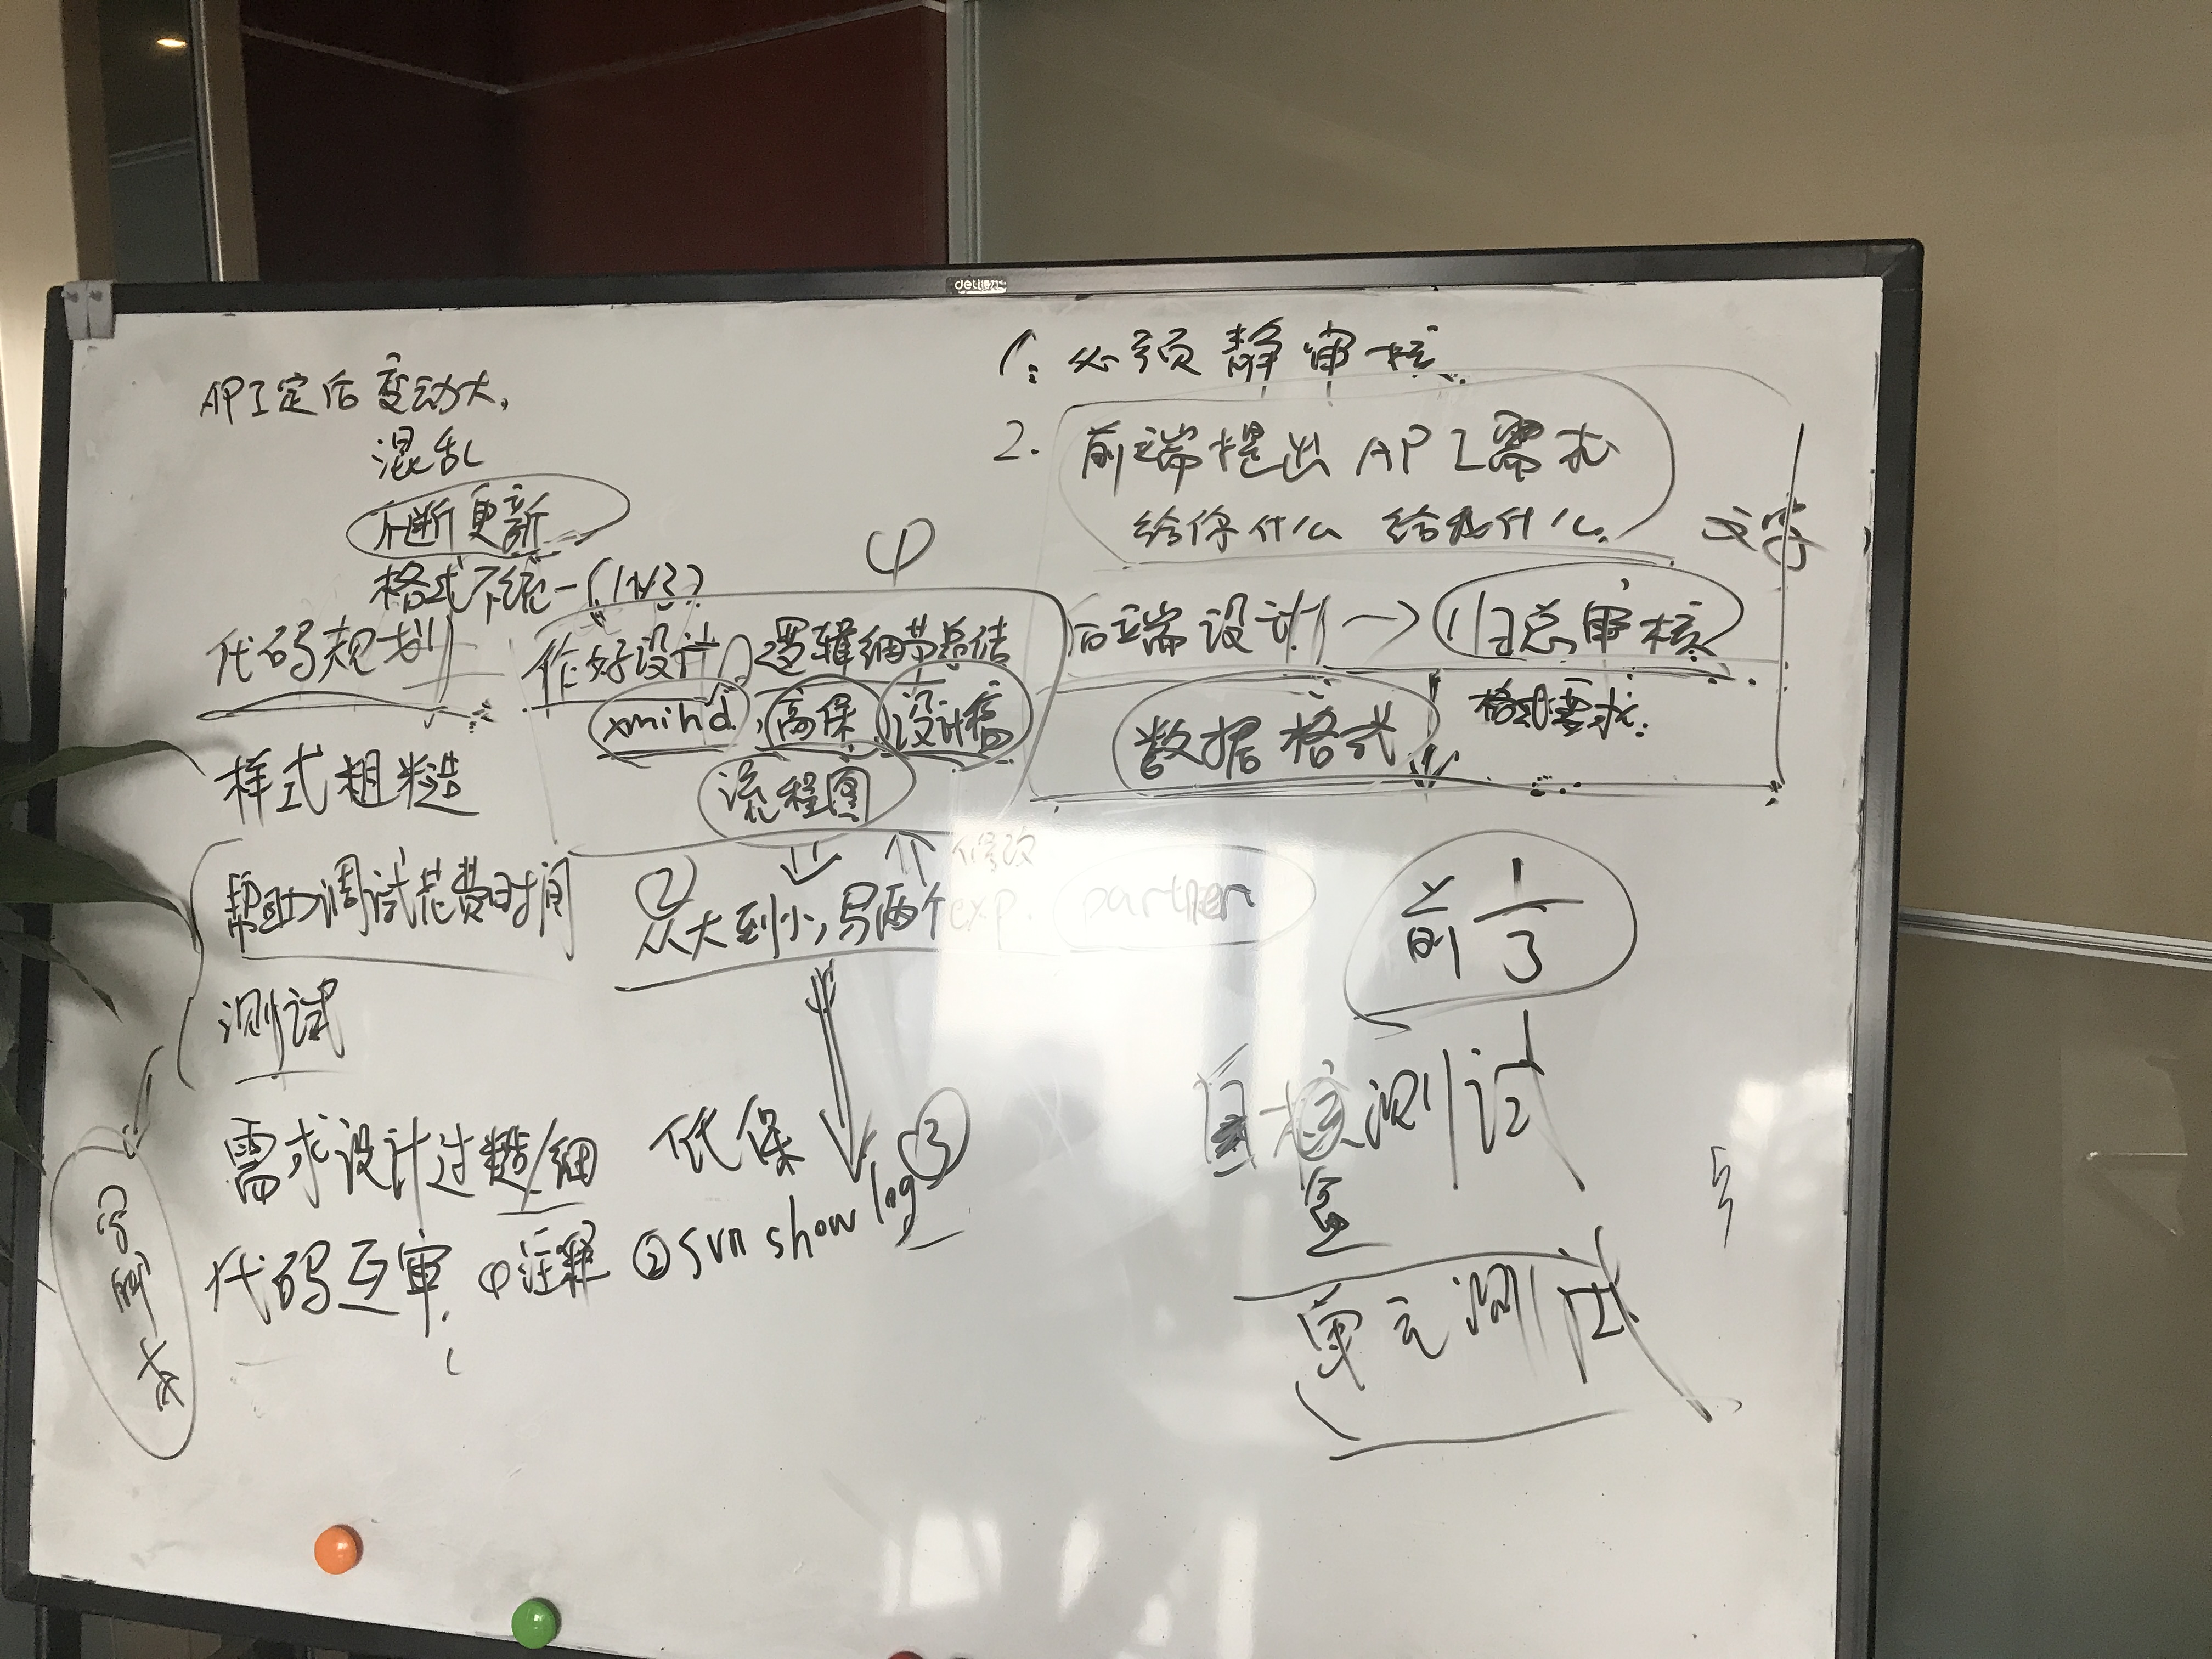 API定后变动大,
混乱
不断更新
格式不统一(1N3?)
代码规划
作好设计,逻辑细节总结
xmind,高保,设计稿
流程图
样式粗糙
帮助调试花费时间
②
从大到小,写两个exp. partner
修改
测试
需求设计过糙/细 低保
③
代码互审. ①注释 ②svn show log
1. 必须 静 审核.
2. 前端提出 API需求
给你什么 给我什么.
文字
后端设计 → 归总审核
数据格式
格式需求.
前 1/3
测试
单元测试